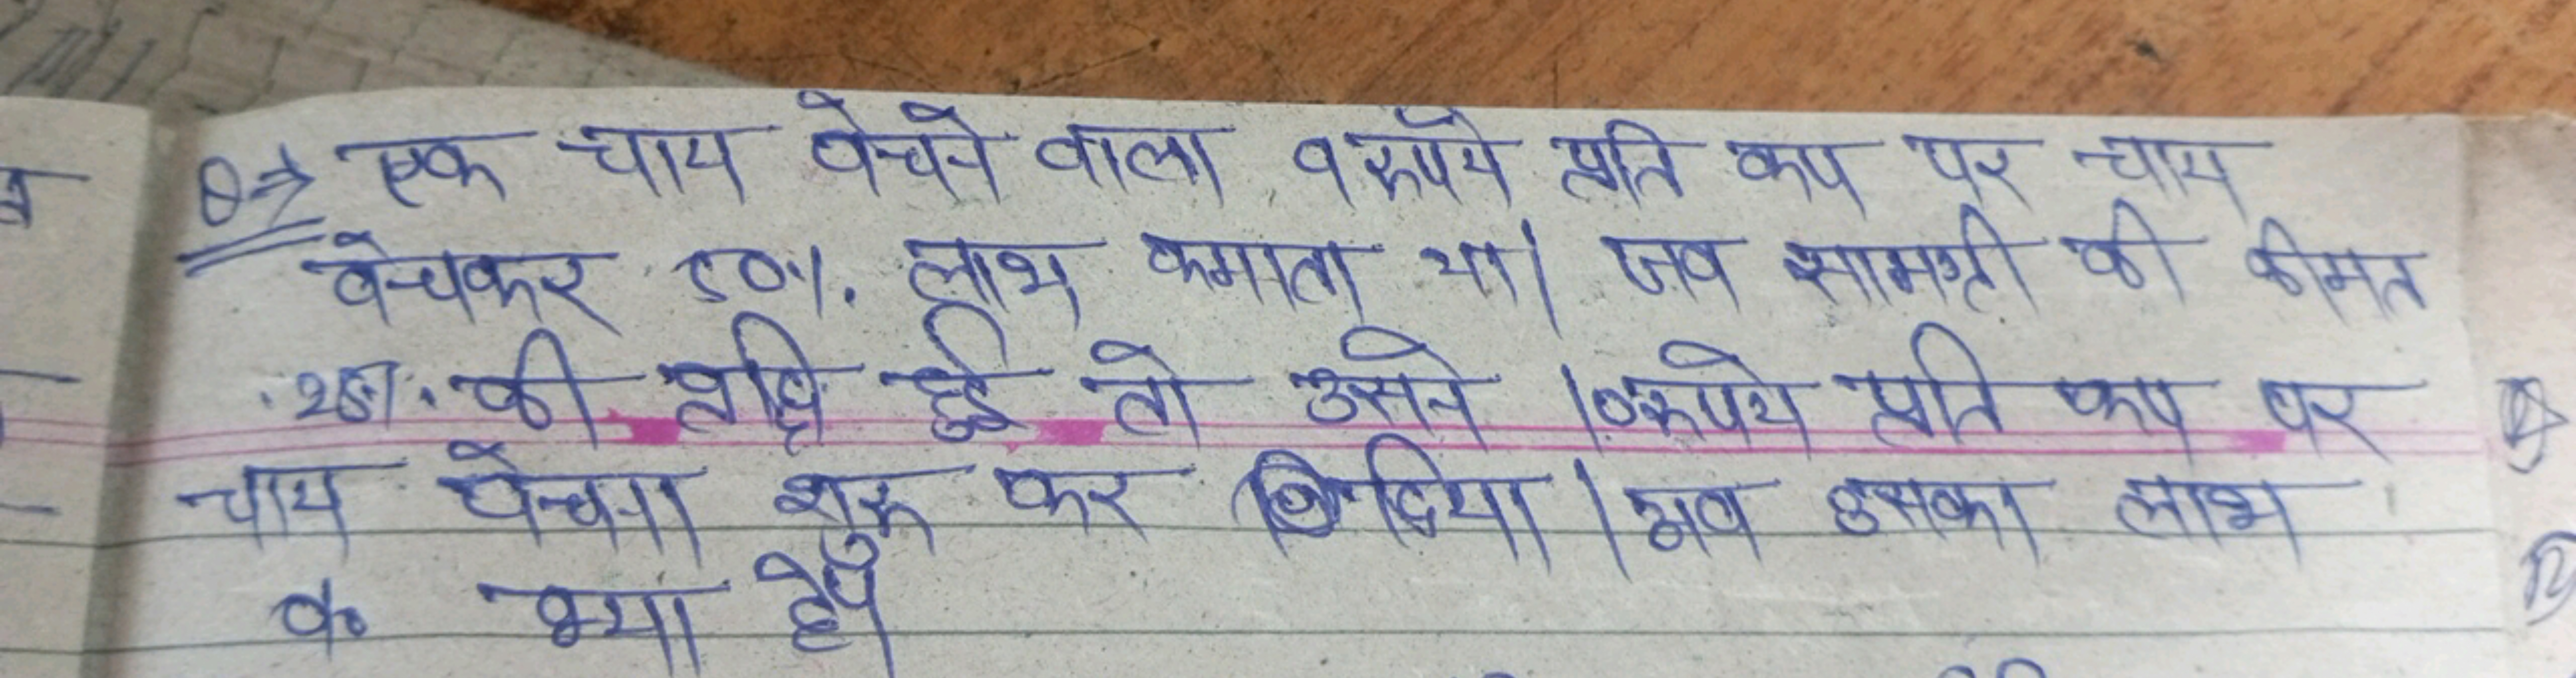 Q⇒ एक चाय बेचने वाला 9 रूपये प्रति कप पर चाय
बेचकर 50%. लाभ कमाता था। जब सामग्री की कीमत
25%. की वृद्धि हुई तो उसने 10रूपये प्रति कप पर
चाय बेचना शुरू कर दिया। अब उसका लाभ
% क्या है?